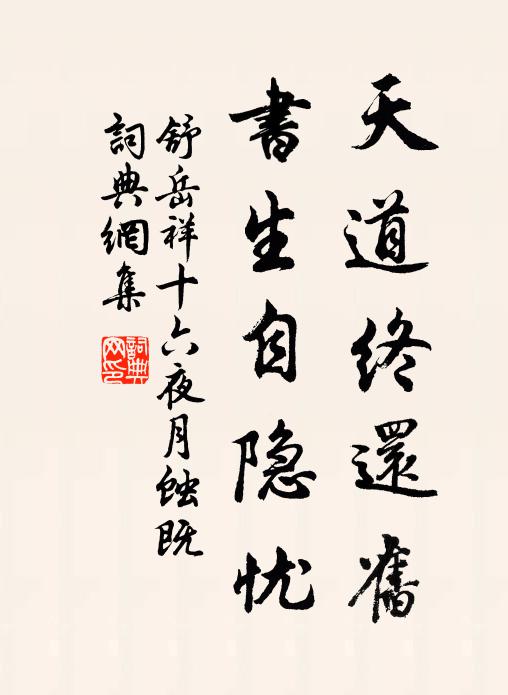 天道終還舊
書生自隐忧
舒岳祥十六夜月蝕既
詞典網集
詞典
网印